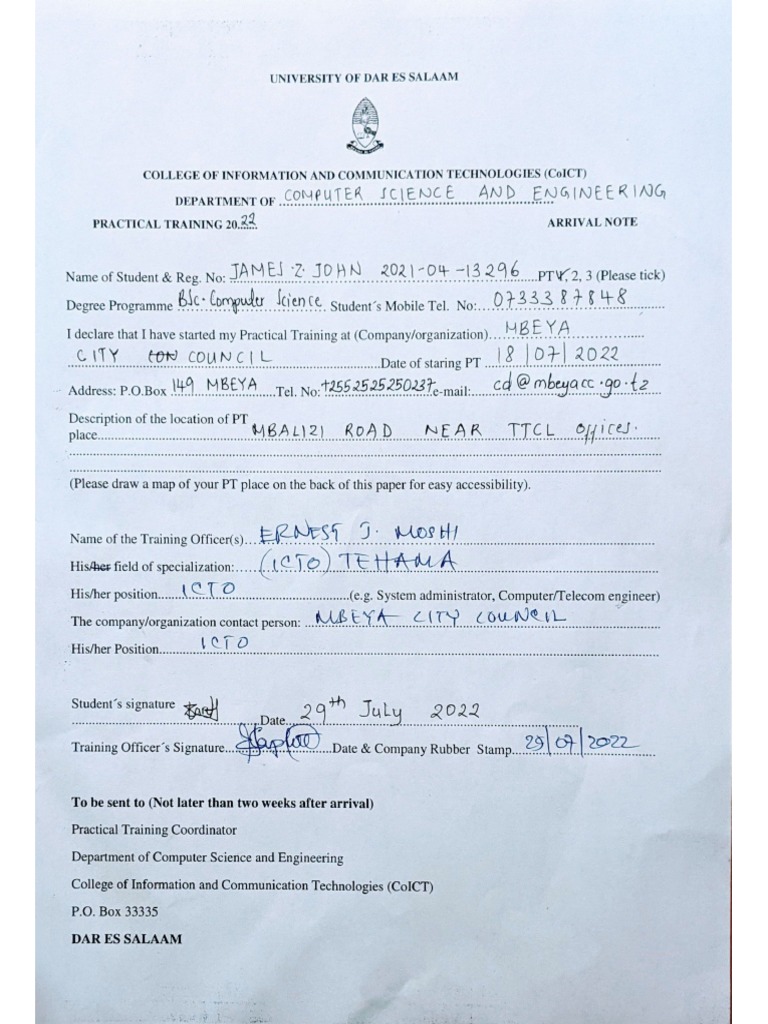 UNIVERSITY OF DAR ES SALAAM
COLLEGE OF INFORMATION AND COMMUNICATION TECHNOLOGIES (CoICT)
DEPARTMENT OF COMPUTER SCIENCE AND ENGINEERING
PRACTICAL TRAINING 2022 ARRIVAL NOTE
Name of Student & Reg. No: JAMES Z. JOHN 2021-04-13296 PT1, 2, 3 (Please tick)
Degree Programme BSc. Computer Science Student´s Mobile Tel. No: 0733387848
I declare that I have started my Practical Training at (Company/organization) MBEYA
CITY COUNCIL Date of staring PT 18/07/2022
Address: P.O.Box 149 MBEYA Tel. No: +2552525250237 e-mail: cd@mbeyacc.go.tz
Description of the location of PT
place MBALIZI ROAD NEAR TTCL offices.
(Please draw a map of your PT place on the back of this paper for easy accessibility).
Name of the Training Officer(s) ERNEST J. MOSHI
His/her field of specialization: (ICTO) TEHAMA
His/her position ICTO (e.g. System administrator, Computer/Telecom engineer)
The company/organization contact person: MBEYA CITY COUNCIL
His/her Position ICTO
Student´s signature
Date 29th July 2022
Training Officer´s Signature Date & Company Rubber Stamp 29/07/2022
To be sent to (Not later than two weeks after arrival)
Practical Training Coordinator
Department of Computer Science and Engineering
College of Information and Communication Technologies (CoICT)
P.O. Box 33335
DAR ES SALAAM